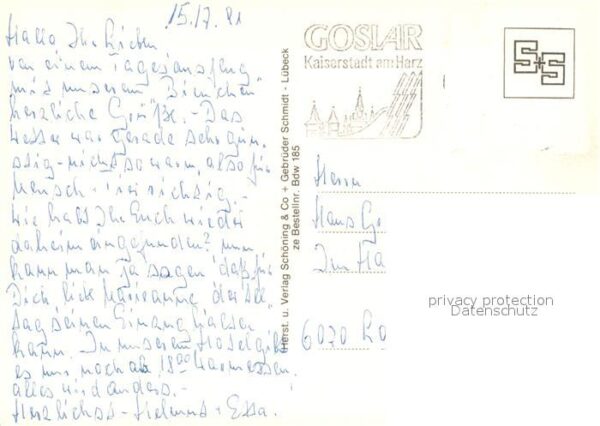 15.7.81
Hallo Ihr Lieben
von einem Tagesausflug
mit unserem "Bienchen"
herzliche Grüße. - Das
Wetter war gerade sehr gün-
stig - nicht so warm, also für
Mensch - richtig. -
Wie habt Ihr Euch wieder
daheim eingefunden? nun
kann man ja sagen daß für
Dich lieb Marianne der
seinen
kann. In unserem Hotel gibt
es nur noch ab 18.00 warmessen.
alles wird anders. -
Herzlichst - Helmut +
GOSLAR
Kaiserstadt am Harz
S+S
Herst. u. Verlag Schöning & Co + Gebrüder Schmidt - Lübeck
ze Bestellnr. Bdw 185
Herrn
Hans
Im
6070
privacy protection
Datenschutz